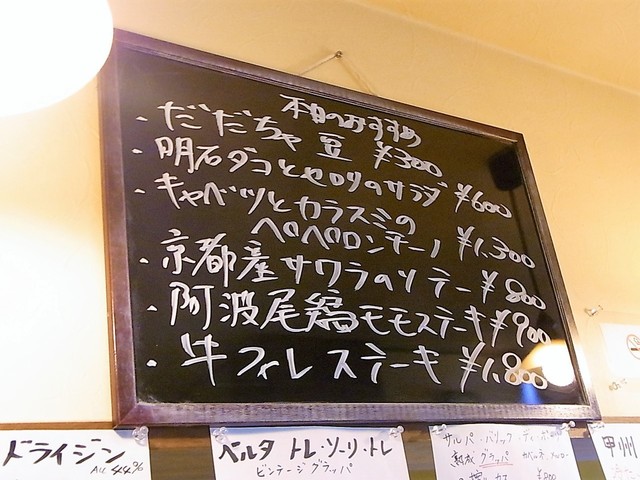 本日のおすすめ
・だだちゃ豆 ¥300
・明石ダコとセロリのサラダ ¥600
・キャベツとカラスミの
ペペロンチーノ ¥1,300
・京都産サワラのソテー ¥800
・阿波尾鶏モモステーキ ¥900
・牛フィレステーキ ¥1,800
ドライジン
ALC 44%
ベルタ トレ・ソーリ・トレ
ビンテージグラッパ
熟成 グラッパ
¥800
甲州